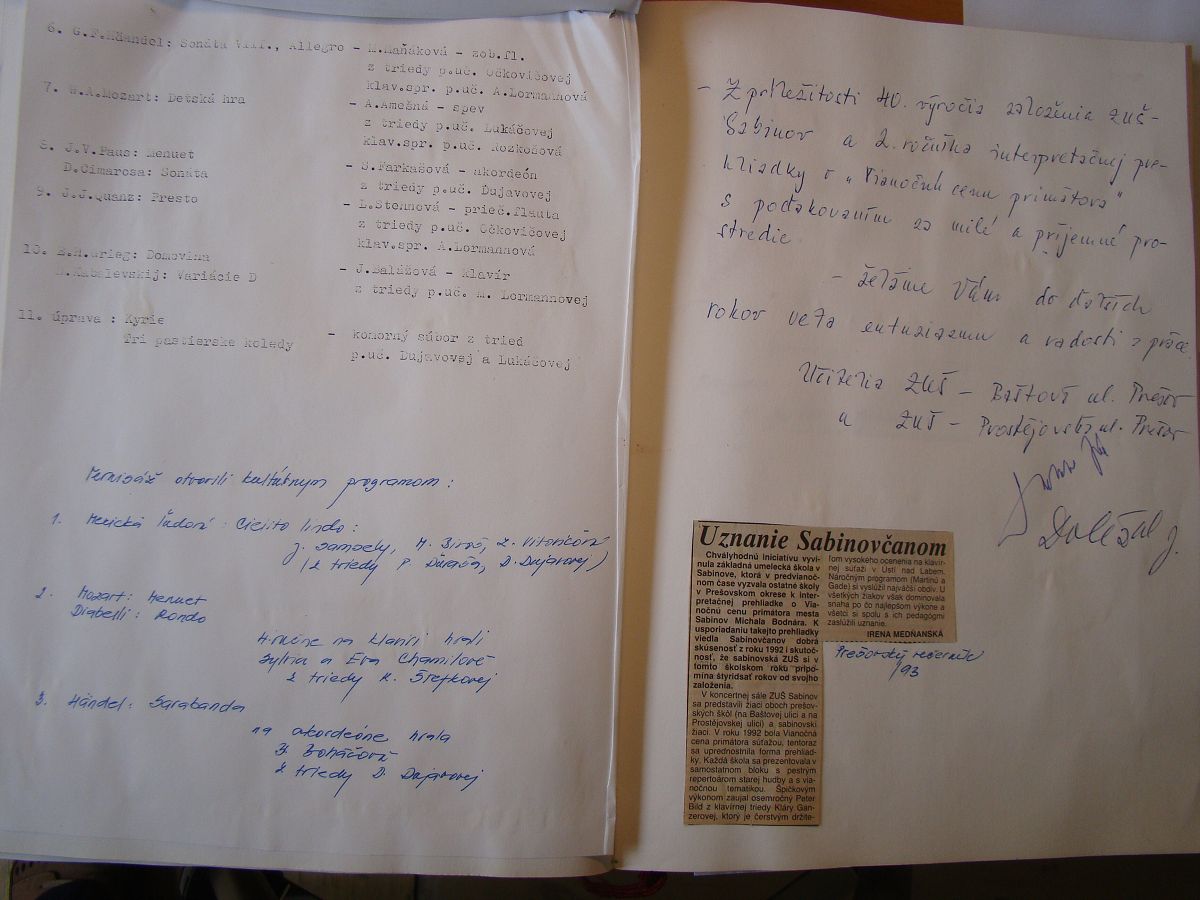 6. G.F.Händel: Sonáta VIII., Allegro - M.Maňáková - zob.fl.
z triedy p.uč. Očkovičovej
klav.spr. p.uč. A.Lormannová
7. W.A.Mozart: Detská hra - A.Amešná - spev
z triedy p.uč. Lukáčovej
klav.spr. p.uč. Rozkošová
8. J.V.Paus: Menuet - S.Farkašová - akordeón
D.Cimarosa: Sonáta z triedy p.uč. Dujavovej
9. J.J.Quanz: Presto - L.Stennová - prieč.flauta
z triedy p.uč. Očkovičovej
klav.spr. A.Lormannová
10. E.H.Grieg: Domovina - J.Balážová - klavír
D.Kabalevskij: Variácie D z triedy p.uč. M. Lormannovej
11. úprava : Kyrie - komorný súbor z tried
Tri pastierske koledy p.uč. Dujavovej a Lukáčovej
Vernisáž otvorili kultúrnym programom :
1. Mexická ľudová : Cielito lindo :
J. Samsely, M. Biroš, Z. Vitkovičová
( z triedy P. Ďurača, D. Dujavovej )
2. Mozart: Menuet
Diabelli: Rondo
4-ručne na klavíri hrali
Sylvia a Eva Chamilové
z triedy K. Štefkovej
3. Händel: Sarabanda
na akordeóne hrala
B. Boháčová
z triedy D. Dujavovej
- Z príležitosti 40. výročia založenia ZUŠ-
Sabinov a 2. ročníka interpretačnej pre-
hliadky o "Vianočnú cenu primátora"
s poďakovaním za milé a príjemné pro-
stredie
- želáme Vám do ďalších
rokov veľa entuziazmu a radosti z práce.
Učitelia ZUŠ - Baštová ul. Prešov
a ZUŠ - Prostějovská ul. Prešov
Doležal J.
Uznanie Sabinovčanom
Chvályhodnú iniciatívu vyvi-
nula základná umelecká škola v
Sabinove, ktorá v predvianoč-
nom čase vyzvala ostatné školy
v Prešovskom okrese k inter-
pretačnej prehliadke o Via-
nočnú cenu primátora mesta
Sabinov Michala Bodnára. K
usporiadaniu takejto prehliadky
viedla Sabinovčanov dobrá
skúsenosť z roku 1992 i skutoč-
nosť, že sabinovská ZUŠ si v
tomto školskom roku pripo-
mína štyridsať rokov od svojho
založenia.
V koncertnej sále ZUŠ Sabinov
sa predstavili žiaci oboch prešov-
ských škôl (na Baštovej ulici a na
Prostějovskej ulici) a sabinovskí
žiaci. V roku 1992 bola Vianočná
cena primátora súťažou, tentoraz
sa uprednostnila forma prehliad-
ky. Každá škola sa prezentovala v
samostatnom bloku s pestrým
repertoárom starej hudby a s via-
nočnou tematikou. Špičkovým
výkonom zaujal osemročný Peter
Bild z klavírnej triedy Kláry Gan-
zerovej, ktorý je čerstvým držite-
ľom vysokého ocenenia na klavír-
nej súťaži v Ústí nad Labem.
Náročným programom (Martinů a
Gade) si vyslúžil najväčší obdiv. U
všetkých žiakov však dominovala
snaha po čo najlepšom výkone a
všetci si spolu s ich pedagógmi
zaslúžili uznanie.
IRENA MEDŇANSKÁ
Prešovský večerník
/93